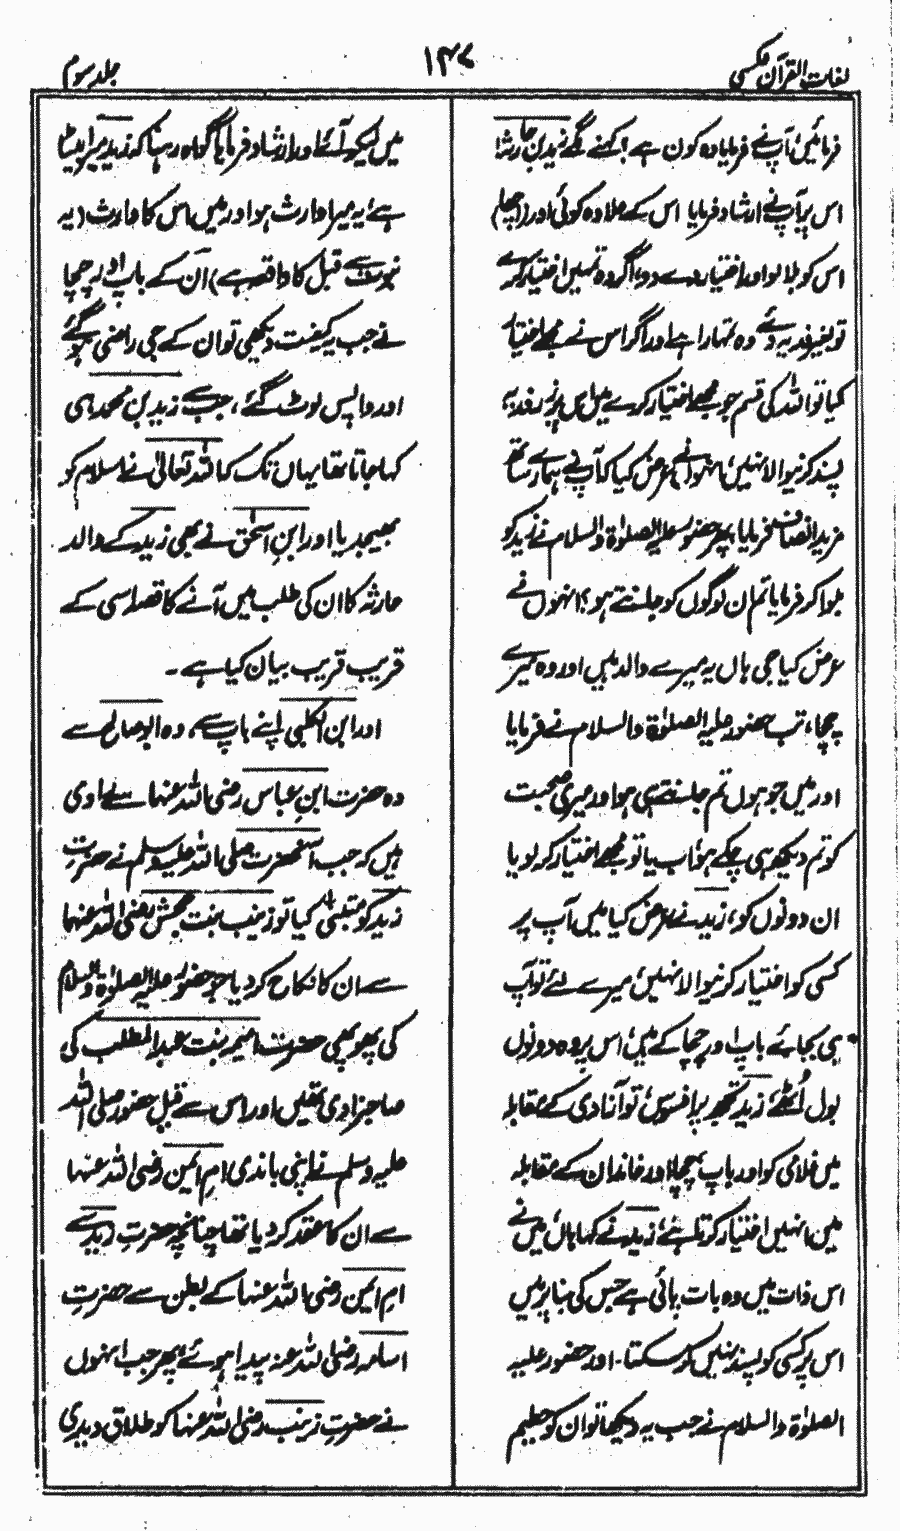 لغات القرآن عکسی
۱۴۷
جلد سوم
فرمائیں، آپ نے فرمایا وہ کون ہے؟ کہنے لگے زید بن حارثہ
اس پر آپ نے ارشاد فرمایا اس کے علاوہ کوئی اور (اچھا)
اس کو بلا لو اور اختیار دے دو، اگر وہ تمہیں اختیار کرے
تو بغیر فدیہ دئے وہ تمہارا ہے اور اگر اس نے مجھے اختیار
کیا تو اللہ کی قسم جو مجھے اختیار کرے میں اس پر زر فدیہ
پسند کرنیوالا نہیں، انہوں نے عرض کیا کہ آپ نے ہمارے ساتھ
مزید انصاف فرمایا، پھر حضور علیہ الصلوٰۃ والسلام نے زید کو
بلوا کر فرمایا تم ان لوگوں کو جانتے ہو؟ انہوں نے
عرض کیا جی ہاں یہ میرے والد ہیں اور وہ میرے
چچا، تب حضور علیہ الصلوٰۃ والسلام نے فرمایا
اور میں جو ہوں تم جانتے ہی ہو اور میری صحبت
کو تم دیکھ ہی چکے ہو، اب یا تو مجھے اختیار کر لو یا
ان دونوں کو، زید نے عرض کیا میں آپ پر
کسی کو اختیار کرنیوالا نہیں، میرے لئے تو آپ
ہی بجائے باپ اور چچا کے ہیں، اس پر وہ دونوں
بول اُٹھے، زید تجھ پر افسوس، تو آزادی کے مقابلہ
میں غلامی کو اور باپ چچا اور خاندان کے مقابلہ
میں انہیں اختیار کرتا ہے، زید نے کہا ہاں، میں نے
اس ذات میں وہ بات پائی ہے جس کی بنا پر میں
اس پر کسی کو پسند نہیں کر سکتا۔ اور حضور علیہ
الصلوٰۃ والسلام نے جب یہ دیکھا تو ان کو حطیم
میں لیکر آئے اور ارشاد فرمایا گواہ رہنا کہ زید میرا بیٹا
ہے، یہ میرا وارث ہو اور میں اس کا وارث (یہ
نبوت سے قبل کا واقعہ ہے) ان کے باپ اور چچا
نے جب یہ کیفیت دیکھی تو ان کے جی راضی ہو گئے
اور واپس لوٹ گئے، جب سے زید بن محمد ہی
کہا جاتا تھا یہاں تک کہ اللہ تعالیٰ نے اسلام کو
بھیجدیا اور ابن اسحٰق نے بھی زید کے والد
حارثہ کا ان کی طلب میں آنے کا قصہ اسی کے
قریب قریب بیان کیا ہے۔
اور ابن الکلبی اپنے باپ سے، وہ ابوصالح سے
وہ حضرت ابن عباس رضی اللہ عنہما سے راوی
ہیں کہ جب آنحضرت صلی اللہ علیہ وسلم نے حضرت
زید کو متبنٰی کیا تو زینب بنت جحش رضی اللہ عنہا
سے ان کا نکاح کر دیا جو حضور علیہ الصلوٰۃ والسلام
کی پھوپھی حضرت امیمہ بنت عبدالمطلب کی
صاحبزادی تھیں اور اس سے قبل حضور صلی اللہ
علیہ وسلم نے اپنی باندی ام ایمن رضی اللہ عنہا
سے ان کا عقد کر دیا تھا چنانچہ حضرت زید کے
ام ایمن رضی اللہ عنہا کے بطن سے حضرت
اسامہ رضی اللہ عنہ پیدا ہوئے پھر جب انہوں
نے حضرت زینب رضی اللہ عنہا کو طلاق دیدی